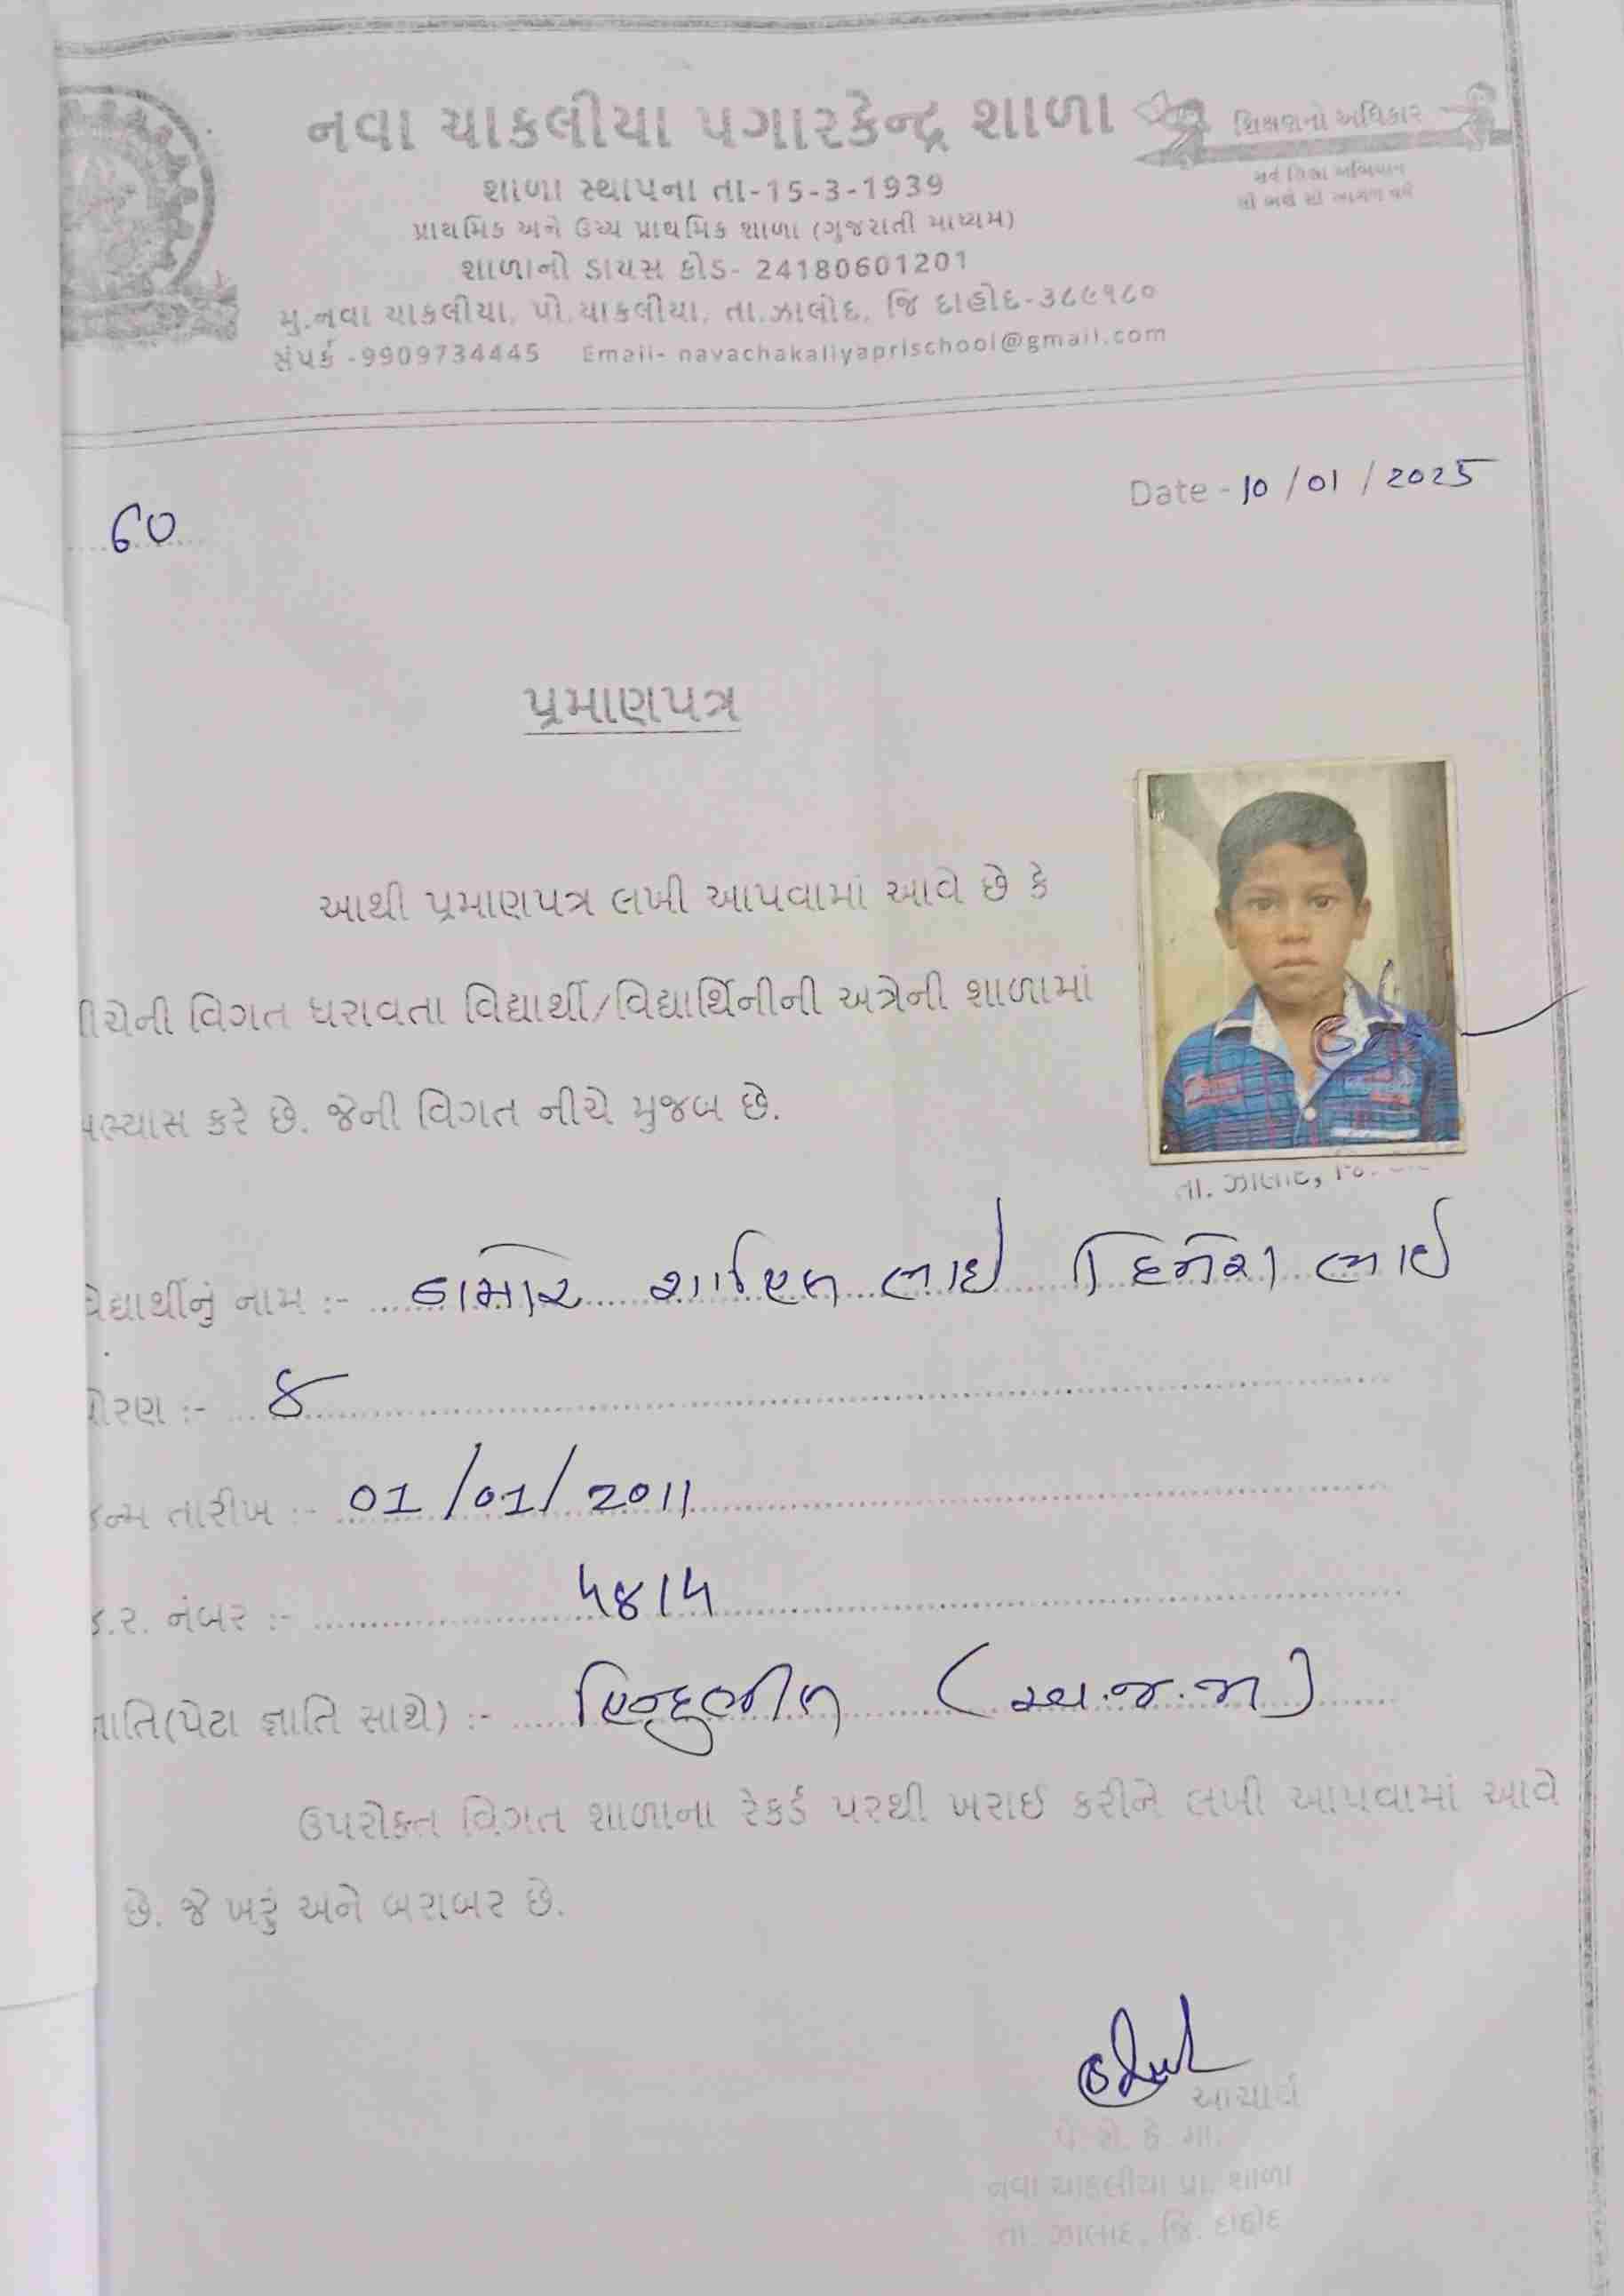 નવા ચાકલીયા પગારકેન્દ્ર શાળા
શિક્ષાનો અધિકાર
સર્વ શિક્ષા અભિયાન
સૌ ભણે સૌ આગળ વધે
શાળા સ્થાપના તા-15-3-1939
પ્રાથમિક અને ઉચ્ચ પ્રાથમિક શાળા (ગુજરાતી માધ્યમ)
શાળાનો ડાયસ કોડ- 24180601201
મુ.નવા ચાકલીયા, પો.ચાકલીયા, તા.ઝાલોદ, જિ દાહોદ-૩૮૯૧૮૦
સંપર્ક -9909734445 Email- navachakaliyaprischool@gmail.com
Date - 10/01/2025
પ્રમાણપત્ર
આથી પ્રમાણપત્ર લખી આપવામાં આવે છે કે
ીચેની વિગત ધરાવતા વિદ્યાર્થી/વિદ્યાર્થિનીની અત્રેની શાળામાં
ભ્યાસ કરે છે. જેની વિગત નીચે મુજબ છે.
તા. ઝાલોદ, જિ.
વિદ્યાર્થીનું નામ :- ડામોર ભાઈ દિનેશ ભાઈ
ોરણ :- ૪
જન્મ તારીખ :- 01/01/2011
.ર. નંબર :- ૫૪૧૫
ાતિ(પેટા જ્ઞાતિ સાથે) :- હિન્દુભીલ (અ.જ.જા)
ઉપરોક્ત વિગત શાળાના રેકર્ડ પરથી ખરાઈ કરીને લખી આપવામાં આવે
છે. જે ખરું અને બરાબર છે.
આચાર્ય
પે. સે. કે. મા.
નવા ચાકલીયા પ્રા. શાળા
તા. ઝાલોદ, જિ. દાહોદ